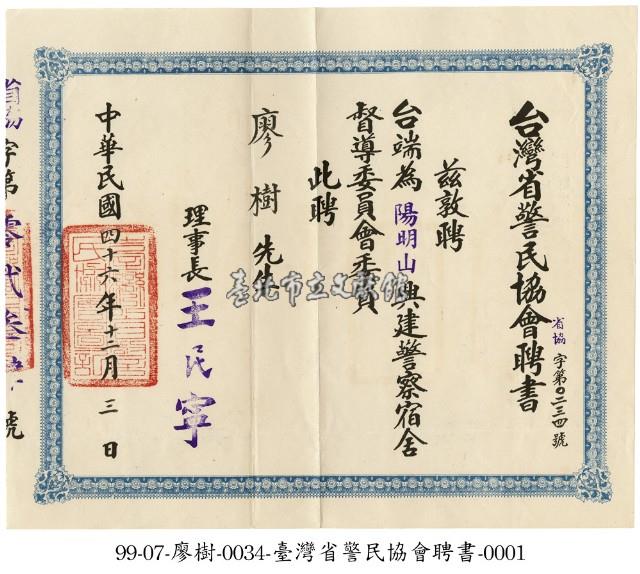 台灣省警民協會聘書
省協字第0二三四號
茲敦聘
台端為陽明山興建警察宿舍
督導委員會委員
此聘
廖樹先生
理事長王民寧
中華民國四十六年十二月三日
省協字第零弍叁
號
臺北市立文獻館
99-07-廖樹-0034-臺灣省警民協會聘書-0001